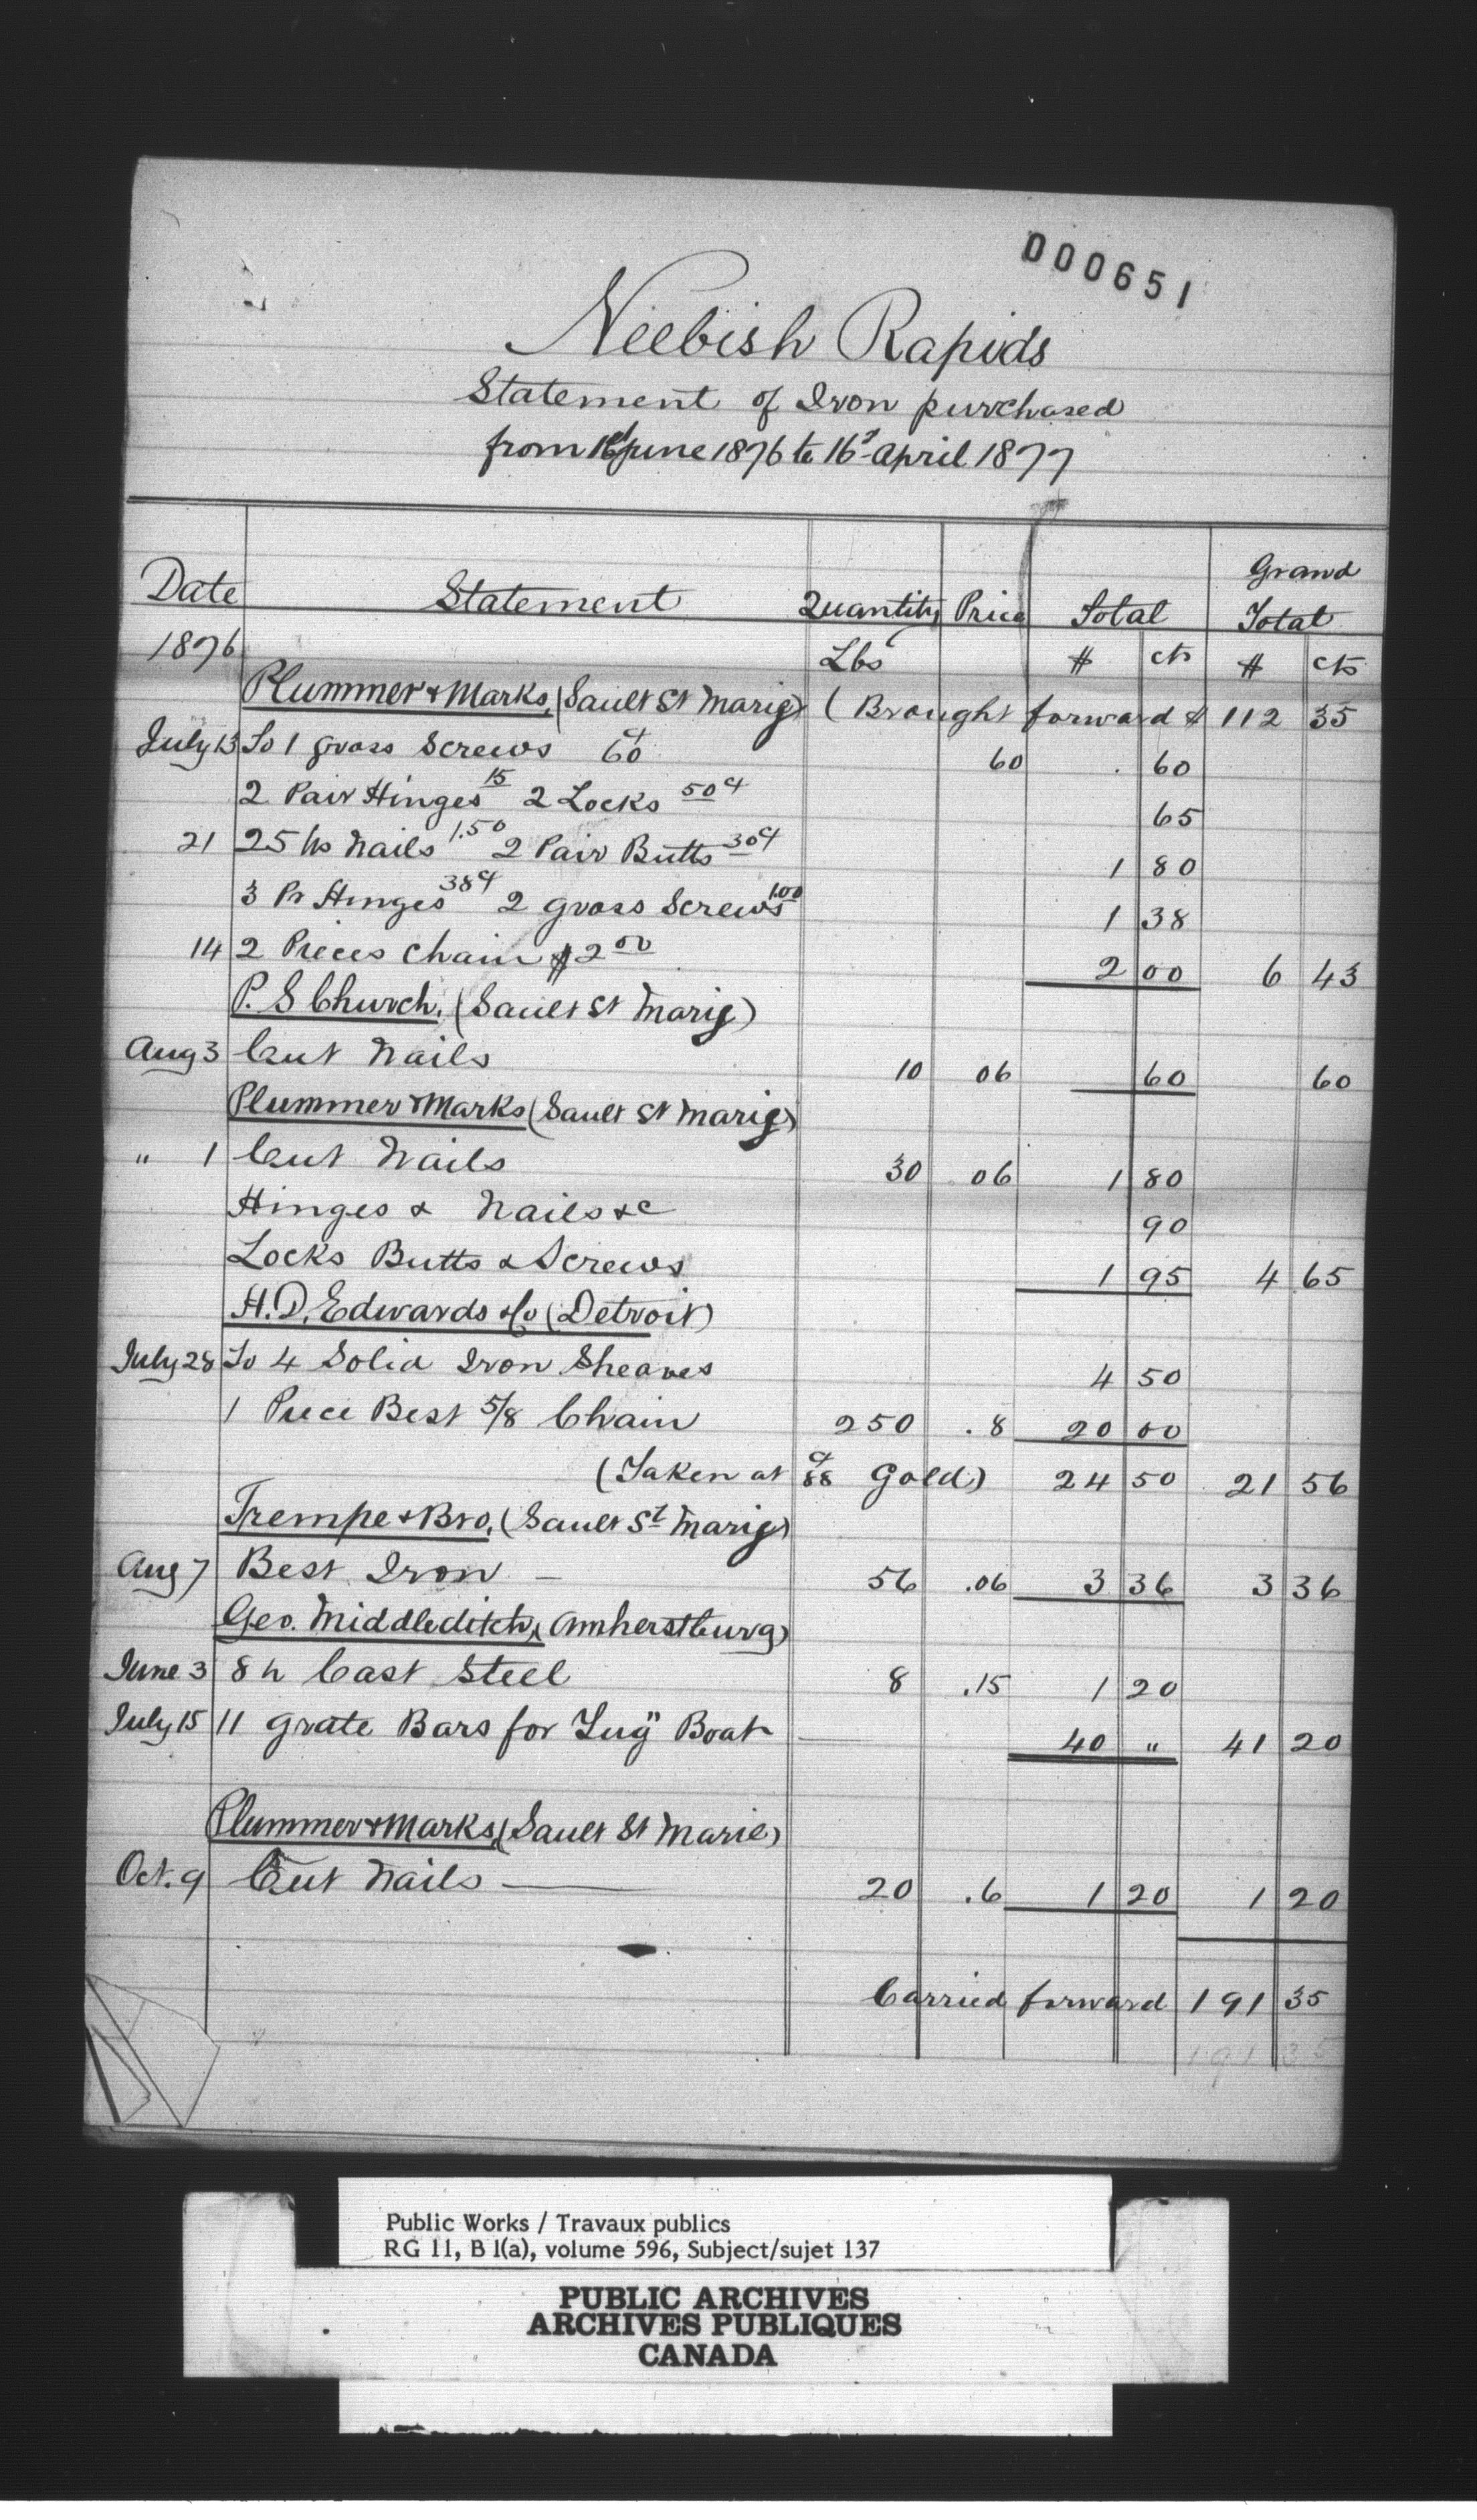 000651
Neebish Rapids
Statement of Iron purchased
from 1st June 1876 to 16th April 1877
Date Statement Quantity Price Total Grand Total
1876 Lbs $ cts $ cts
Plummer & Marks, (Sault St Marie) (Brought forward $ 112 35
July 13 To 1 gross Screws 60¢ 60 . 60
2 Pair Hinges 15 2 Locks 50¢ 65
21 25 lbs Nails 1.50 2 Pair Butts 30¢ 1 80
3 Pr Hinges 38¢ 2 gross Screws 1.00 1 38
14 2 Pieces Chain $2 00 2 00 6 43
P. S Church. (Sault St Marie)
Aug 3 Cut Nails 10 06 60 60
Plummer & Marks (Sault St Marie)
" 1 Cut Nails 30 06 1 80
Hinges & Nails &c 90
Locks Butts & Screws 1 95 4 65
H. D. Edwards & Co (Detroit)
July 28 To 4 Solid Iron Sheaves 4 50
1 Piece Best 5/8 Chain 250 .8 20 00
(Taken at 88¢ Gold) 24 50 21 56
Trempe & Bro. (Sault St Marie)
Aug 7 Best Iron — 56 .06 3 36 3 36
Geo. Middleditch, (Amherstburg)
June 3 8 lb Cast Steel 8 .15 1 20
July 15 11 Grate Bars for "Tug" Boat — 40 " 41 20
Plummer & Marks, (Sault St Marie)
Oct. 9 Cut Nails — 20 .6 1 20 1 20
Carried forward 191 35
191 35
Public Works / Travaux publics
RG 11, B 1(a), volume 596, Subject/sujet 137
PUBLIC ARCHIVES
ARCHIVES PUBLIQUES
CANADA